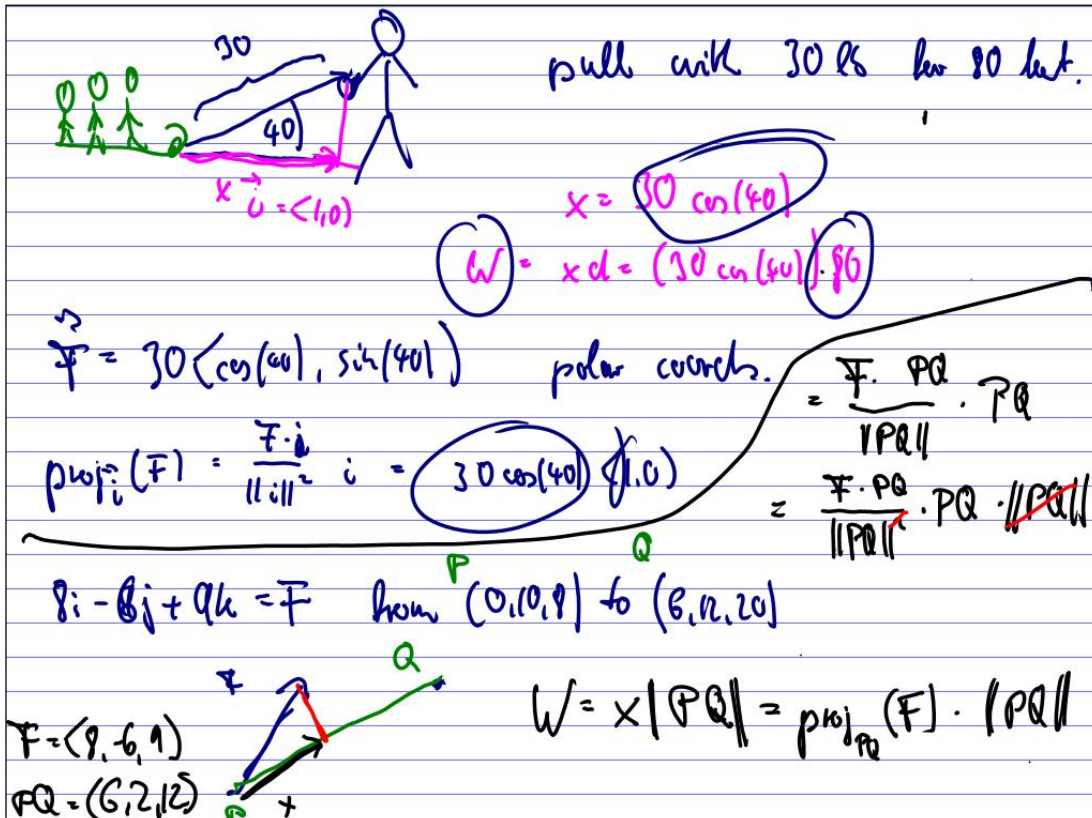 30
pull with 30 lb for 80 feet.
40
x
i = <1,0)
x = 30 cos(40)
W = xd = (30 cos(40)).80
F = 30 <cos(40), sin(40)) polar coords.
proj_i (F) = F·i / ||i||² i = 30 cos(40) (1,0)
= F· PQ / ||PQ|| · PQ
= F·PQ / ||PQ||² · PQ · ||PQ||
P Q
8i - 6j + 9k = F from (0,10,8) to (6,12,20)
F
Q
F = <8,-6,9)
PQ = (6,2,12)
P
x
W = x||PQ|| = proj_PQ (F) · ||PQ||